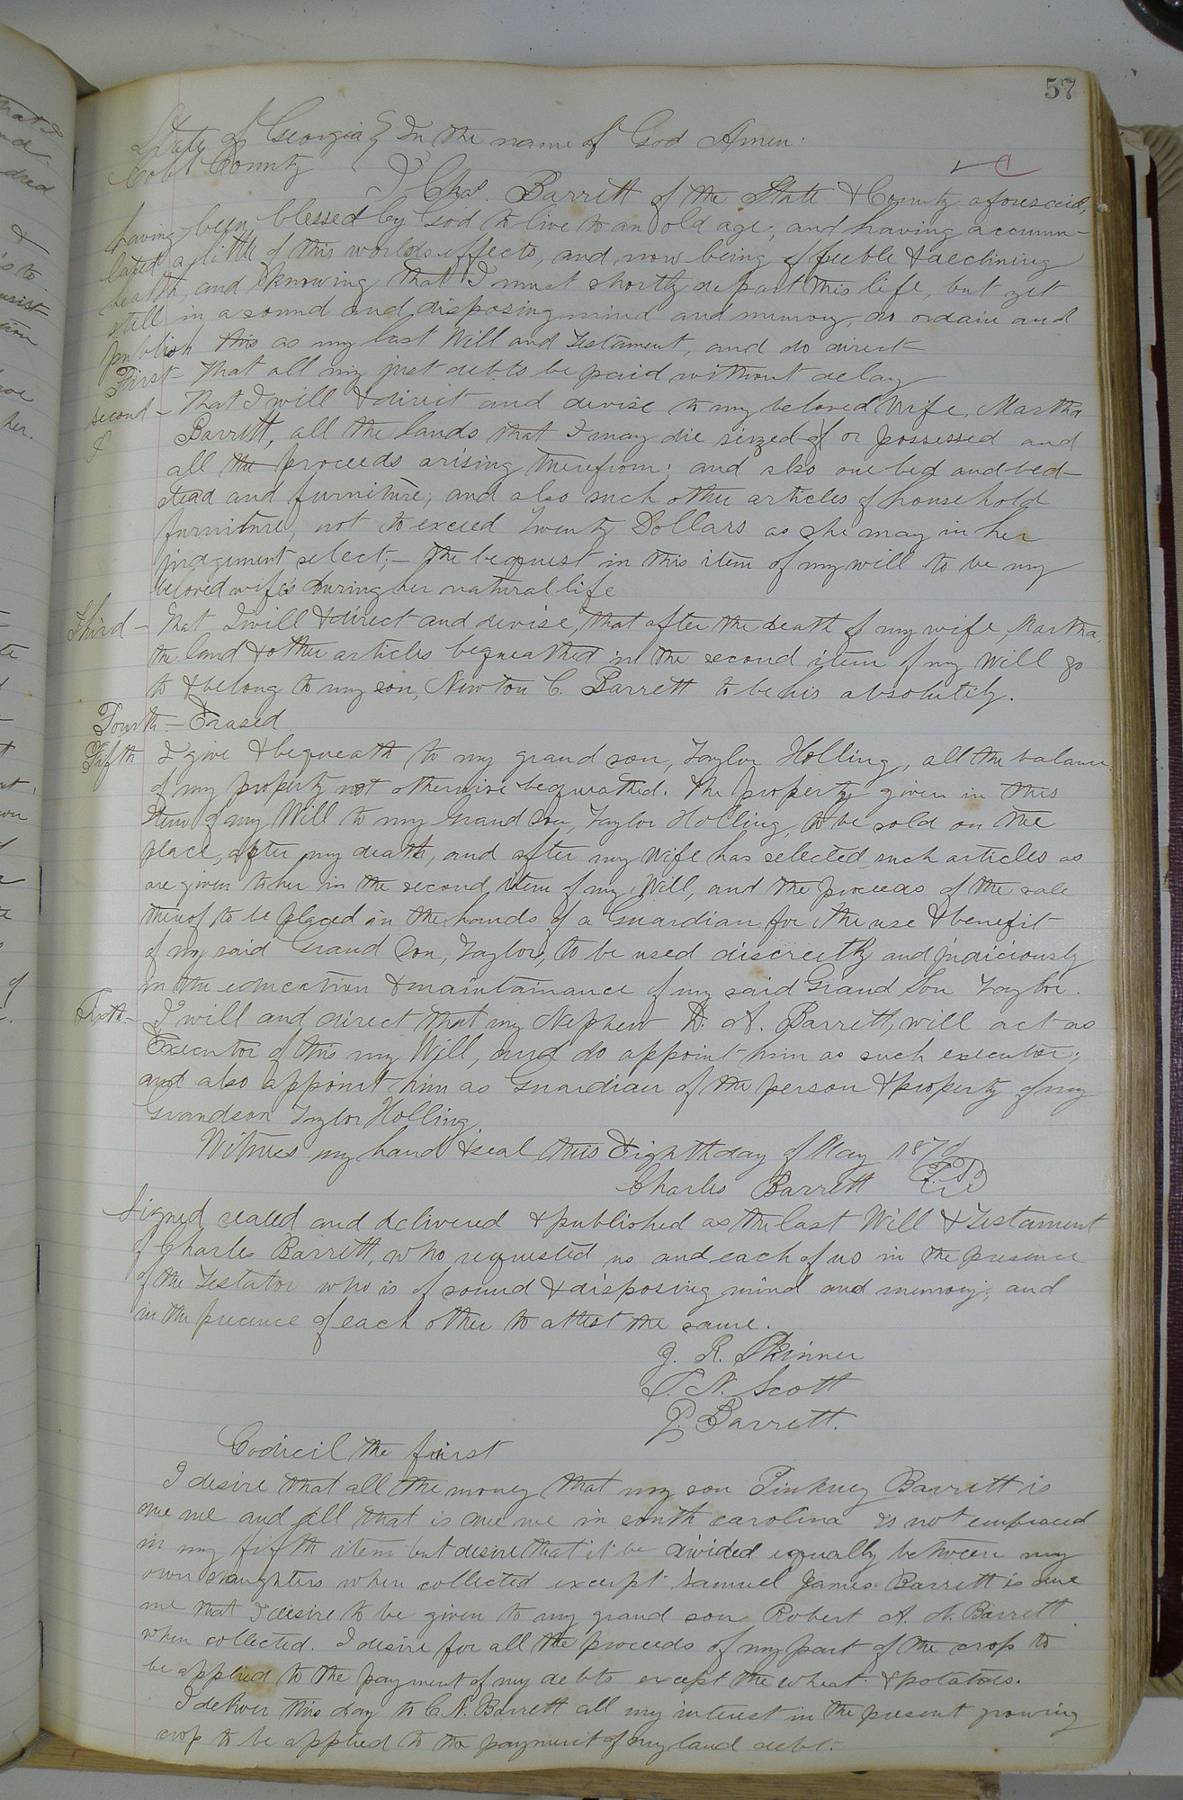 57
State of Georgia } In the name of God Amen:
Cobb County
I Chas. Barrett of the State & County aforesaid,
having been blessed by God to live to an old age, and having accumu-
lated a little of this worlds effects, and now being of feeble & declining
health, and knowing that I must shortly depart this life, but yet
still in a sound and disposing mind and memory, do ordain and
publish this as my last Will and Testament, and do direct
First - That all my just debts be paid without delay
second - That I will & direct and devise to my beloved Wife, Martha
Barrett, all the lands that I may die seized of or possessed and
all the proceeds arising therefrom; and also one bed and bed-
stead and furniture; and also such other articles of household
furniture, not to exceed Twenty Dollars as she may in her
judgement select; - the bequest in this item of my will to be my
beloved wife's during her natural life
Third - That I will & direct and devise, that after the death of my wife, Martha,
the land & other articles bequeathed in the second item of my Will go
to & belong to my son, Newton C. Barrett to be his absolutely.
Fourth - Erased
Fifth I give & bequeath to my grand son, Taylor Holling, all the balance
of my property not otherwise bequeathed. The property given in this
Item of my Will to my Grand Son, Taylor Holling, to be sold on the
place, after my death, and after my Wife has selected such articles as
are given to her in the second item of my Will, and the proceeds of the sale
thereof to be placed in the hands of a Guardian for the use & benefit
of my said Grand Son, Taylor, to be used discreetly and judiciously
in the education & maintainance of my said Grand Son Taylor.
Sixth - I will and direct that my Nephew D. A. Barrett, will act as
Executor of this my Will, and do appoint him as such executor;
and also appoint him as Guardian of the person & property of my
Grandson Taylor Holling.
Witness my hand & seal this Eighth day of May 1870
Charles Barrett
Signed sealed and delivered & published as the last Will & Testament
of Charles Barrett, who requested us and each of us in the presence
of the Testator who is of sound & disposing mind and memory; and
in the presence of each other to attest the same.
J. R. Skinner
T. N. Scott
P. Barrett.
Codicil the first
I desire that all the money that my son Pinkney Barrett is
due me and all that is due me in south carolina is not embraced
in my fifth item but desire that it be divided equally between my
own daughters when collected except Samuel James Barrett is due
me that I desire to be given to my grand son Robert A. N. Barrett
when collected. I desire for all the proceeds of my part of the crop to
be applied to the payment of my debts except the wheat & potatoes.
I deliver this day to C. N. Barrett all my interest in the present growing
crop to be applied to the payment of my land debt.